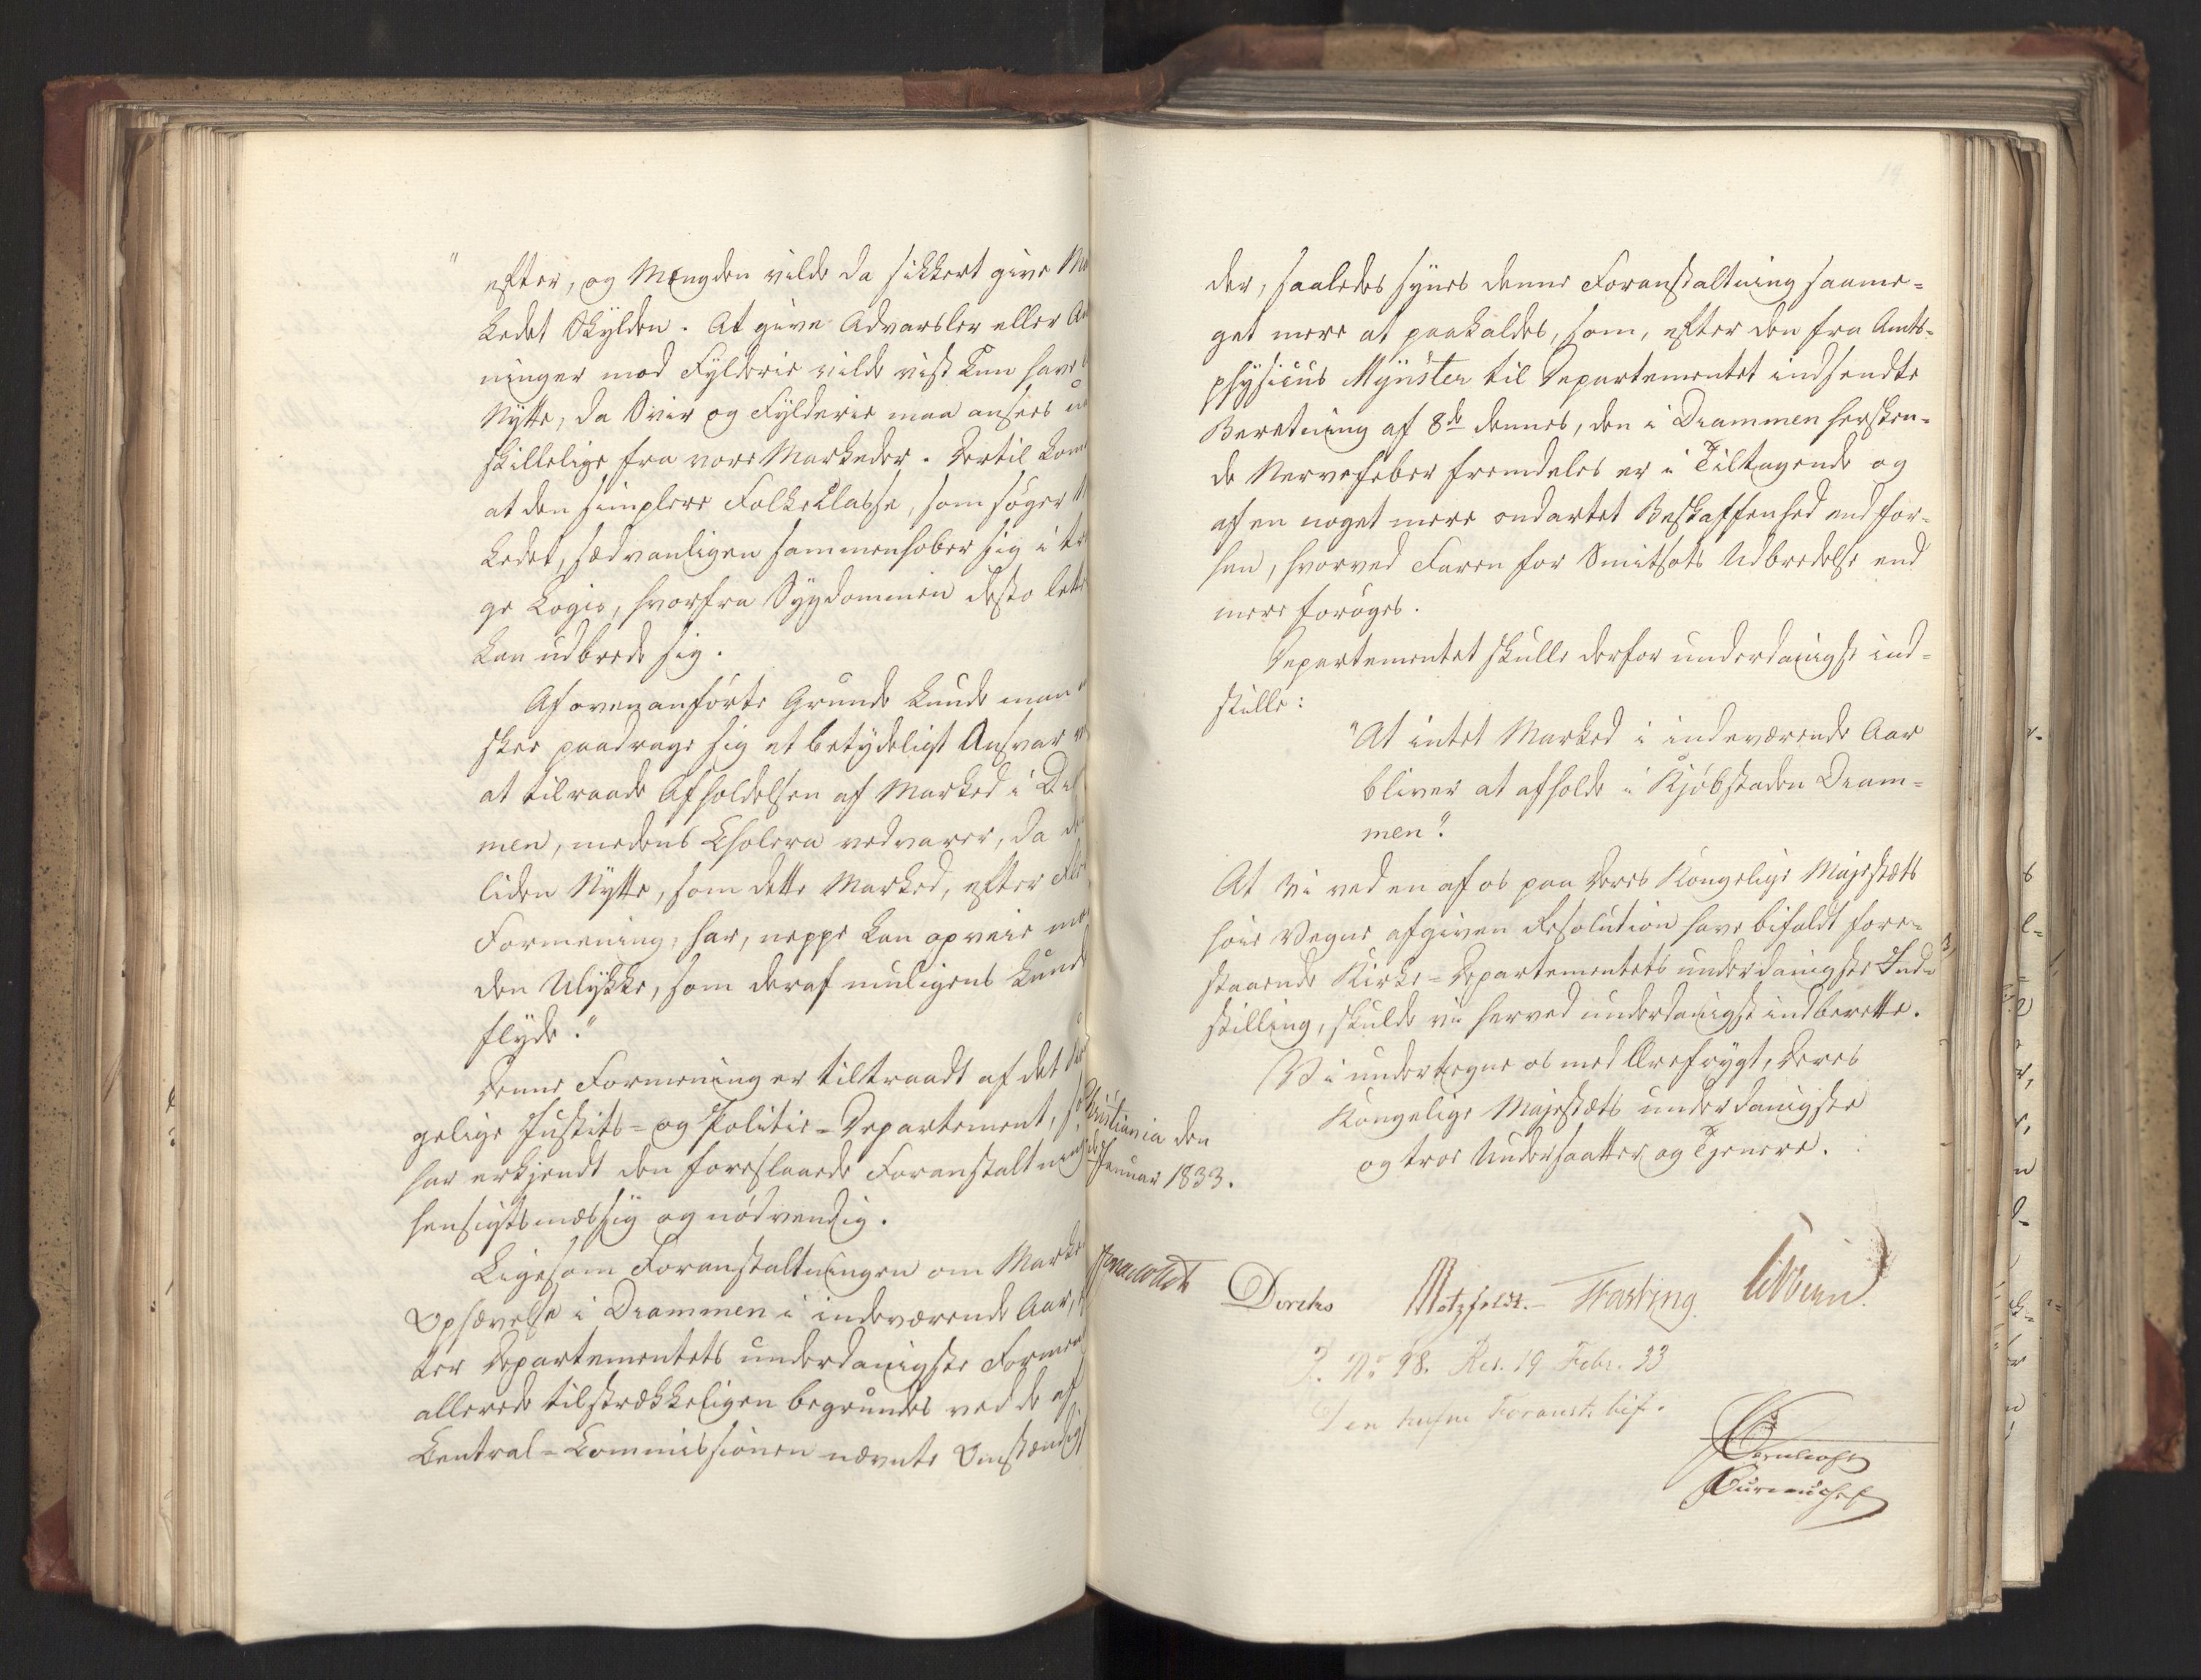 " efter, og Mængden vilde da sikkert give Ma
kedet Skylden. At give Advarsler eller An
ninger mod Fylderie vilde vist kun have
Nytte, da Sviir og Fylderie maa ansees u
skillelige fra vore Markeder. Dertil kom
at den simplere FolkeClasse, som søger M
kedet, sædvanligen sammenhober sig i tr
ge Logis, hvorfra Sygdommen desto lette
kan udbrede sig.
Af ovenanførte Grunde kunde man
skee paadrage sig et betydeligt Ansvar v
at tilraade Afholdelsen af Marked i Dra
men, medens Cholera vedvarer, da de
liden Nytte, som dette Marked, efter Fle
Formening, har, neppe kan opveie m
den Ulykke, som deraf muligens kund
flyde."
Denne Formening er tiltraadt af det Ko
gelige Justits- og Politie-Departement, so
har erkjendt den foreslaaede Foranstaltning
hensigtsmæssig og nødvendig.
Ligesom Foranstaltningen om Marke
Ophævelse i Drammen i indeværende Aar, e
ter Departementets underdanigste Formen
allerede tilstrækkeligen begrundes ved de af
Central-Commissionen nævnte Omstændig
der, saaledes synes denne Foranstaltning saame-
get mere at paakaldes, som, efter den fra Amts-
physicus Mynster til Departementet indsendte
Beretning af 8de dennes, den i Drammen hersken-
de Nervefeber fremdeles er i Tiltagende og
af en noget mere ondartet Beskaffenhed end for-
hen, hvorved Faren for Smitsots Udbredelse end
mere forøges.
Departementet skulle derfor underdanigst ind-
stille:
"At intet Marked i indeværende Aar
bliver at afholde i Kjøbstaden Dram-
men".
At Vi ved en af os paa Deres Kongelige Majestæts
høie Vegne afgiven Resolution have bifaldt fore-
staaende Kirke-Departementets underdanigste Ind-
stilling, skulde vi herved underdanigst indberette.
Vi undertegne os med Ærefrygt, Deres
Kongelige Majestæts underdanigste
og troe Undersaatter og Tjenere.
Christiania den
Januar 1833.
Diriks Motzfeldt. Fasting Sibbern.
J. No 98. Res. 19 Febr. 33
Den trufne Foranst. bif.
Bureauchef